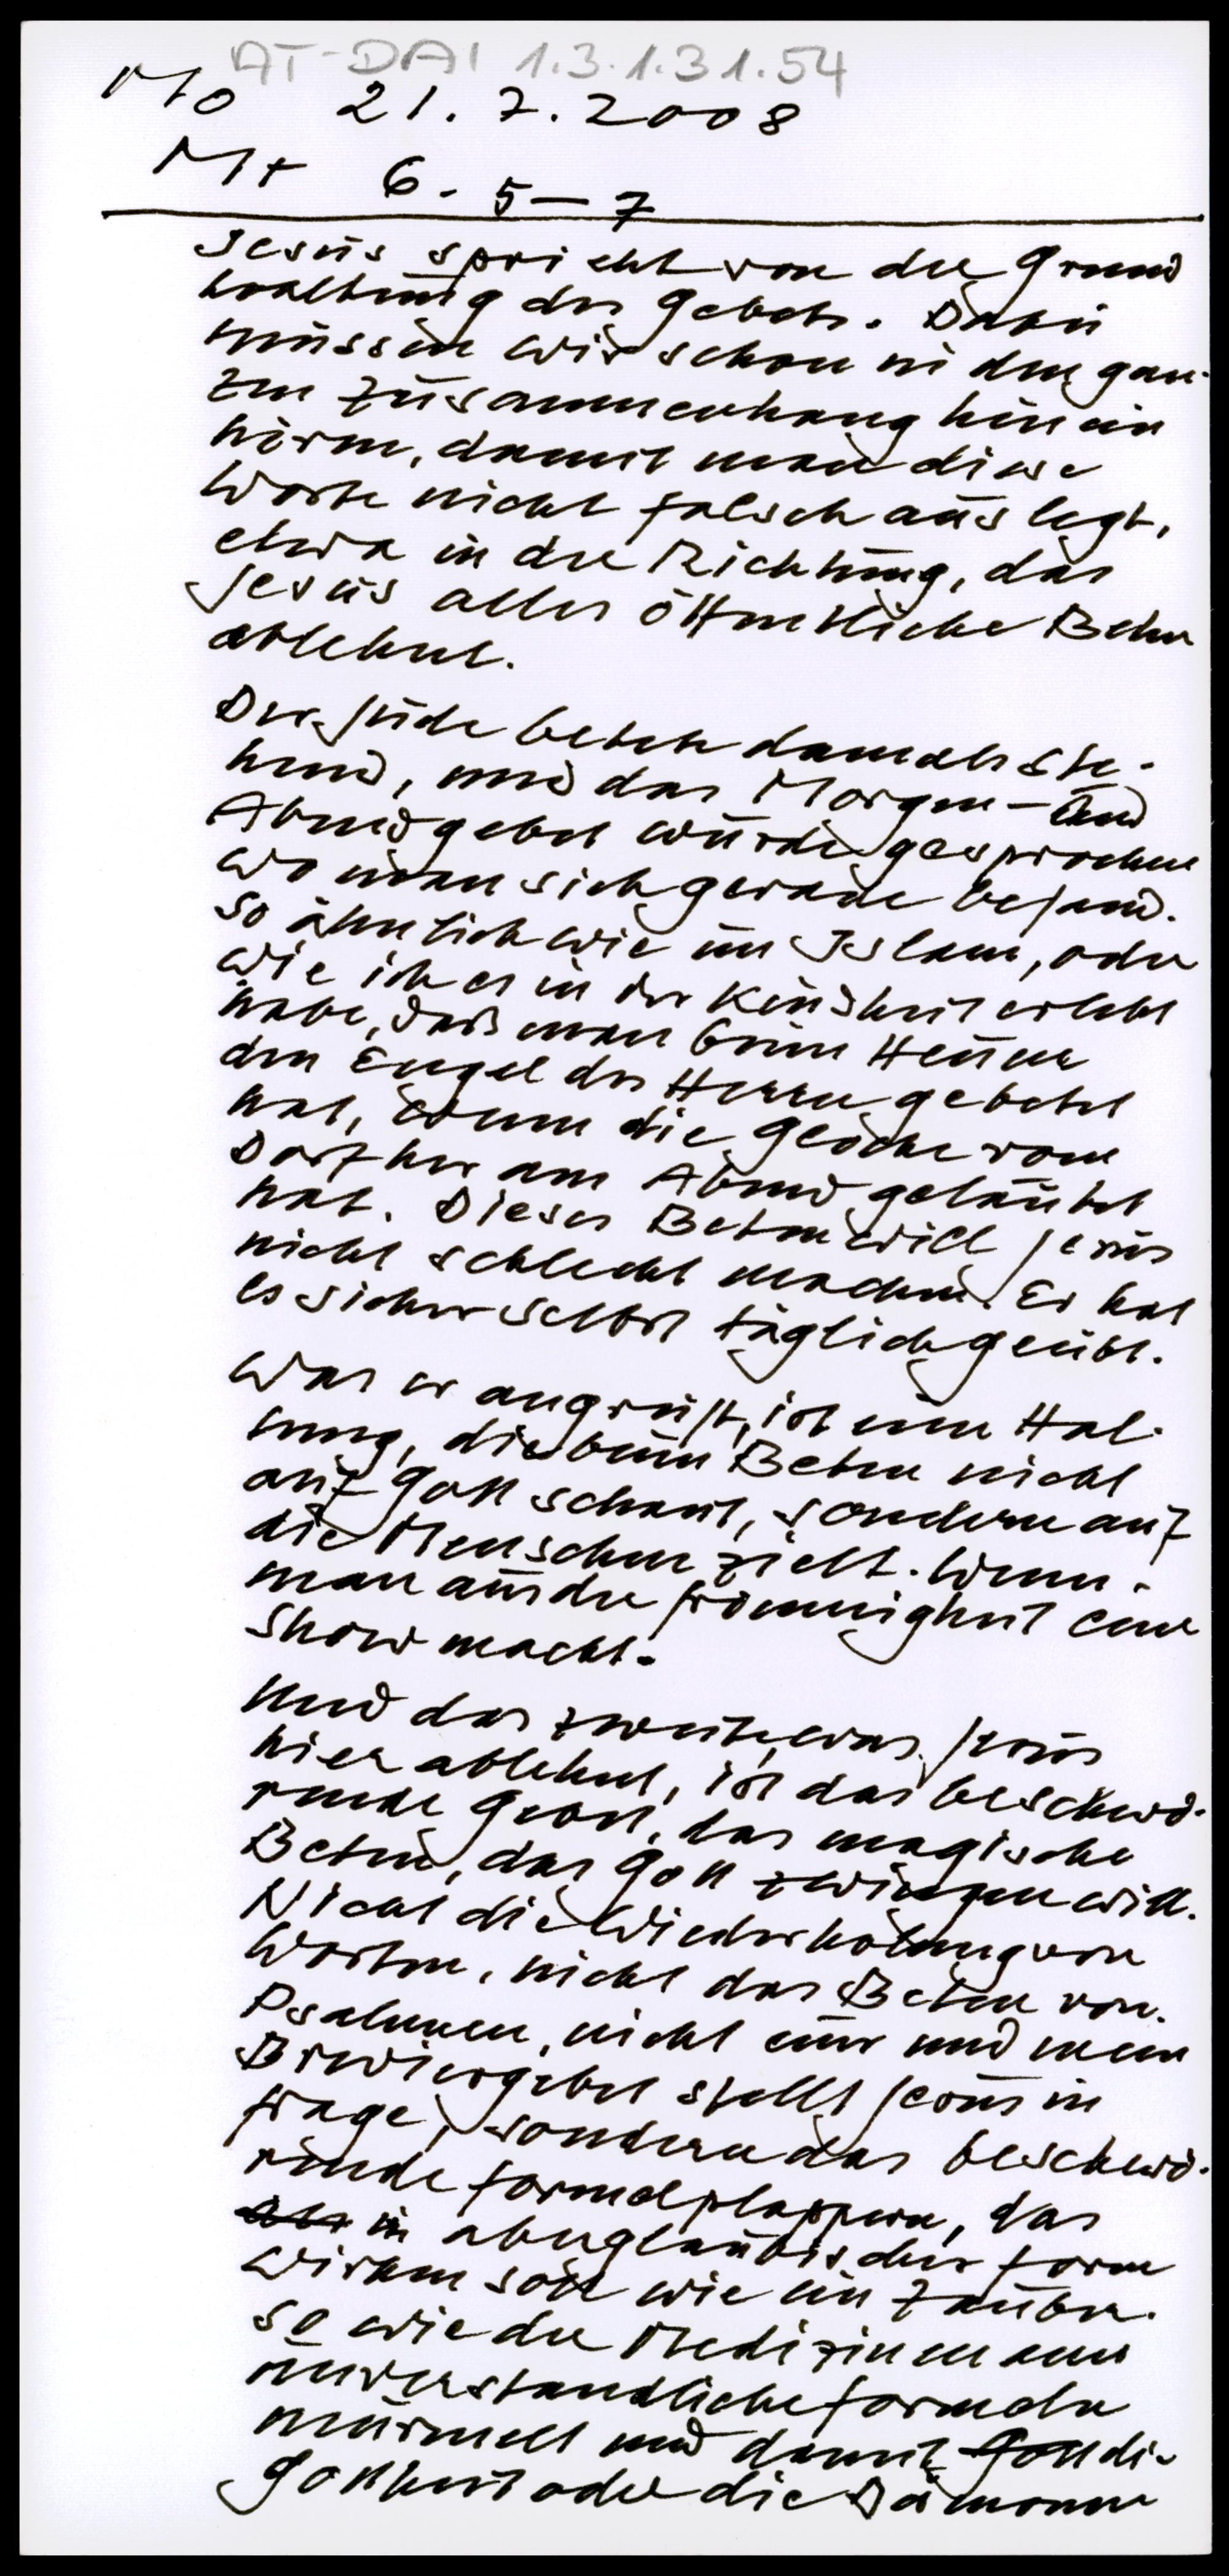 AT-DAI 1.3.1.31.54
Mo 21.7.2008
Mt 6. 5–7
Jesus spricht von der Grund
haltung des Gebets. Dabei
müssen wir schon in den gan-
zen Zusammenhang hinein
hören, damit man diese
Worte nicht falsch auslegt,
etwa in die Richtung, das
Jesus alles öffentliche Beten
ablehnt.
Der Jude betete damals ste-
hend, und das Morgen- und
Abendgebet wurde gesprochen
wo man sich gerade befand.
so ähnlich wie im Islam, oder
wie ich es in der Kindheit erlebt
habe, daß man beim Heuen
den Engel des Herrn gebetet
hat, wenn die Glocke vom
Dorf her am Abend geläutet
hat. Dieses Beten will Jesus
nicht schlecht machen. Er hat
es sicher selbst täglich geübt.
Was er angreift, ist eine Hal-
tung, die beim Beten nicht
auf Gott schaut, sondern auf
die Menschen zielt. Wenn
man aus der Frömmigkeit eine
Show macht.
Und das zweite, was Jesus
hier ablehnt, ist das beschwö-
rende Gebet, das magische
Beten, das Gott zwingen will.
Nicht die Wiederholung von
Worten, nicht das Beten von
Psalmen, nicht euer und mein
Breviergebet stellt Jesus in
Frage, sondern das beschwö-
rende Formelplappern, das
in abergläubischer Form
wirken soll wie ein Zauber.
so wie der Medizinmann
unverständliche Formeln
murmelt und damit Gott die
Gottheit oder die Dämonen